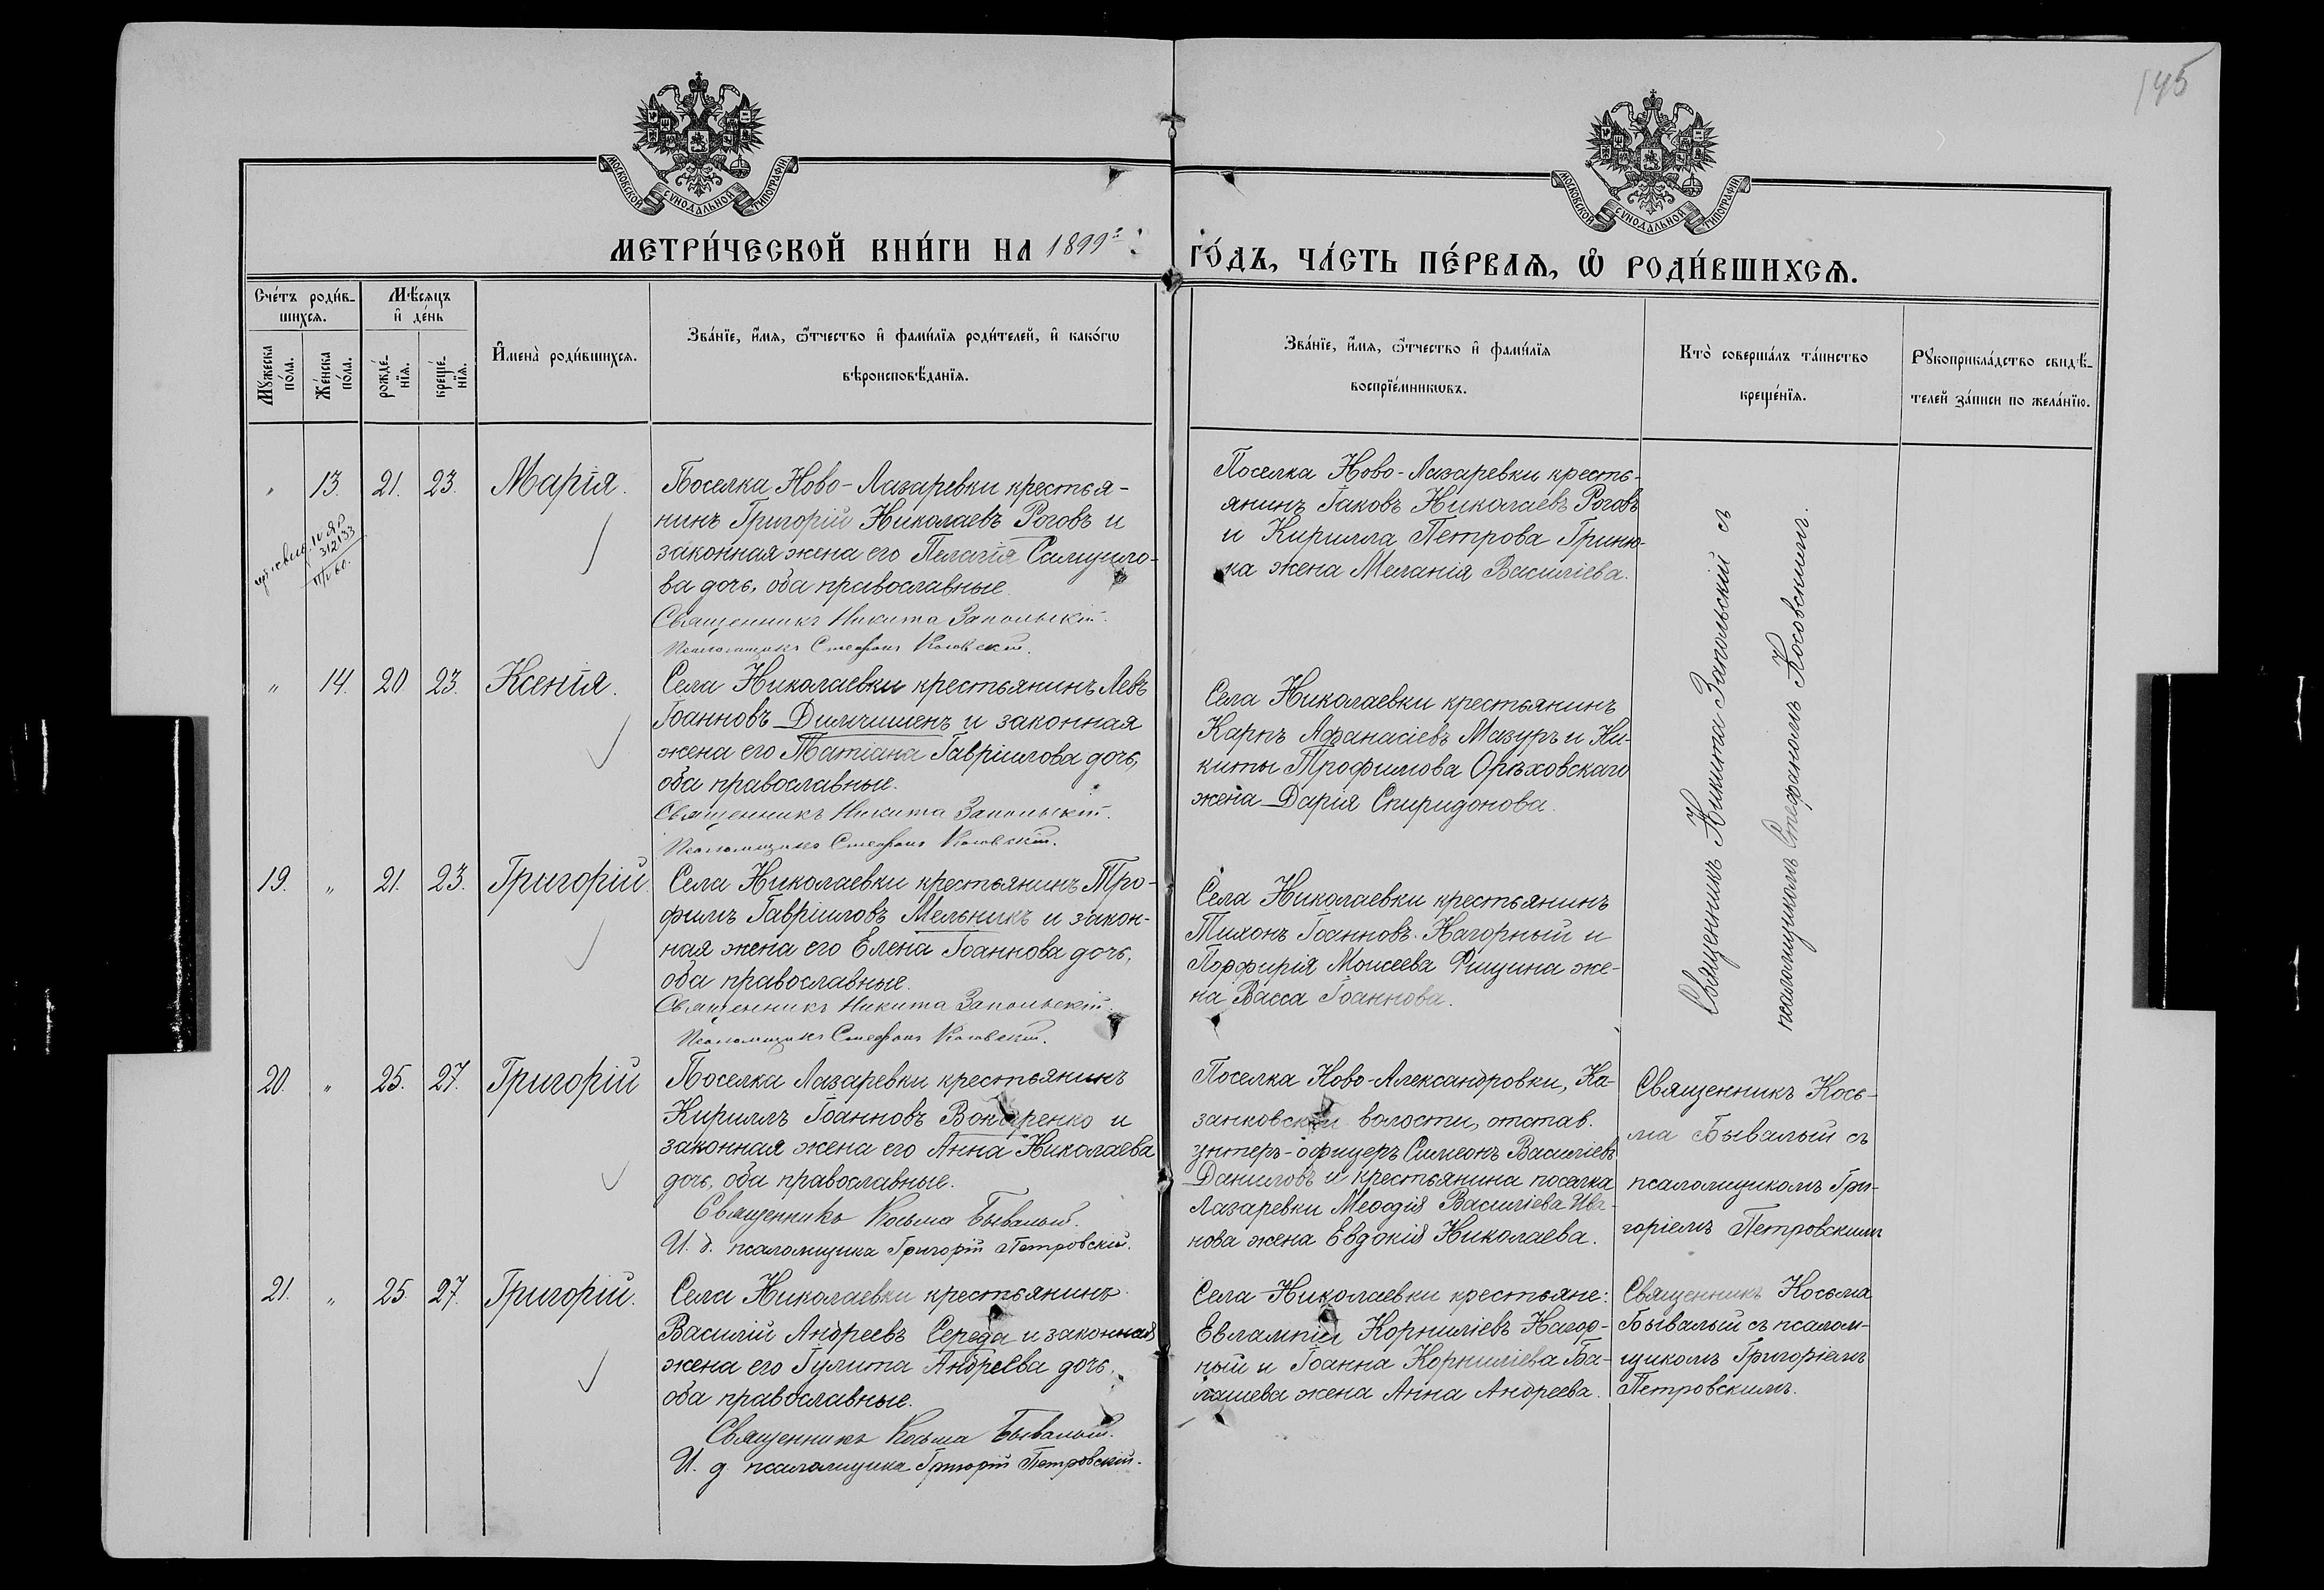 145
МОСКОВСКОЙ СѴНОДАЛЬНОЙ ТИПОГРАФІИ
МОСКОВСКОЙ СѴНОДАЛЬНОЙ ТИПОГРАФІИ
МЕТРИ́ЧЕСКОЙ КНИ́ГИ НА 1899 г.
ГО́ДЪ, ЧА́СТЬ ПЕ́РВАѦ, Ѽ РОДИ́ВШИХСѦ.
Сче́тъ роди́в-
шихсѧ.
Мѣ́сѧцъ
и҆ де́нь
Мꙋ́жеска
по́ла.
Же́нска
по́ла.
рожде́-
нїѧ.
креще́-
нїѧ.
И҆мена̀ роди́вшихсѧ.
Зва́нїе, и҆́мѧ, ѻ҆́тчество и҆ фами́лїѧ роди́телей, и҆ како́гѡ
вѣроисповѣ́данїѧ.
Зва́нїе, и҆́мѧ, ѻ҆́тчество и҆ фами́лїѧ
воспрїе́мникѡвъ.
Кто̀ соверша́лъ та́инство
креще́нїѧ.
Рꙋкоприкла́дство свидѣ́-
телей за́писи по жела́нїю.
" 13. 21. 23. Марія.
312133
Поселка Ново-Лазаревки крестья-
нинъ Григорій Николаевъ Роговъ и
законная жена его Пелагія Самуило-
ва дочь, оба православные.
Священникъ Никита Запольскій.
Псаломщикъ Стефанъ Косовскій.
Поселка Ново-Лазаревки кресть-
янинъ Іаковъ Николаевъ Роговъ
и Кирилла Петрова Гриню-
ка жена Меланія Василіева.
Священникъ Никита Запольский съ
псаломщикомъ Стефаномъ Косовскимъ.
" 14. 20 23. Ксенія.
Села Николаевки крестьянинъ Левъ
Іоанновъ Димчишенъ и законная
жена его Татіана Гавріилова дочь,
оба православные.
Священникъ Никита Запольскій.
Псаломщикъ Стефанъ Косовскій.
Села Николаевки крестьянинъ
Карпъ Афанасіевъ Мазуръ и Ни-
киты Трофимова Орѣховскаго
жена Дарія Спиридонова.
19. " 21. 23. Григорій.
Села Николаевки крестьянинъ Тро-
фимъ Гавріиловъ Мельникъ и закон-
ная жена его Елена Іоаннова дочь,
оба православные.
Священникъ Никита Запольскій.
Псаломщикъ Стефанъ Косовскій.
Села Николаевки крестьянинъ
Тихонъ Іоанновъ Нагорный и
Порфирія Моисеева Рищина же-
на Васса Іоаннова.
20. " 25. 27. Григорій
Поселка Лазаревки крестьянинъ
Кириллъ Іоанновъ Бондаренко и
законная жена его Анна Николаева
дочь, оба православные.
Священникъ Косьма Бывалый.
И. д. псаломщика Григорій Петровскій.
Поселка Ново-Александровки, Ка-
занковской волости, отстав.
унтеръ-офицеръ Симеонъ Василіевъ
Даниловъ и крестьянина поселка
Лазаревки Меѳодія Василіева Ива-
нова жена Евдокія Николаева.
Священникъ Кось-
ма Бывалый съ
псаломщикомъ Гри-
горіемъ Петровскимъ
21. " 25. 27. Григорій.
Села Николаевки крестьянинъ
Василій Андреевъ Середа и законная
жена его Іулита Андреева дочь,
оба православные.
Священникъ Косьма Бывалый.
И. д. псаломщика Григорій Петровскій.
Села Николаевки крестьяне:
Евлампій Корниліевъ Нагор-
ный и Іоанна Корниліева Ба-
лашева жена Анна Андреева.
Священникъ Косьма
Бывалый съ псалом-
щикомъ Григоріемъ
Петровскимъ.